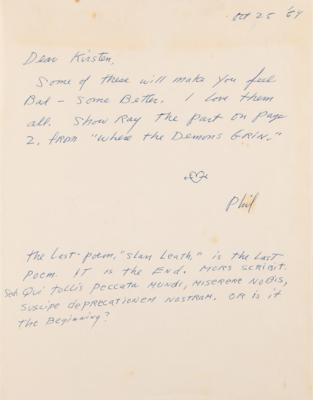 Oct 25 '84
Dear Kirsten,
Some of these will make you feel
Bad - Some Better. I love them
all. Show Ray the part on page
2, from "Where the Demons Grin."
Phil
the last poem, "Slan Leath," is the last
poem. It is the End. Mors scribit.
Sed Qui tollis peccata mundi, miserere nobis,
suscipe deprecationem nostram. Or is it
the Beginning?